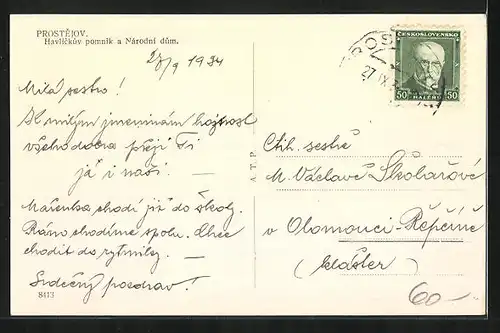 PROSTĚJOV.
Havlíčkův pomník a Národní dům.
27/9 1934
Milá sestro!
K milým jmeninám hojnost
všeho dobra přejí Ti
já i naši.
Mařenka chodí již do školy.
Ráno chodíme spolu. Chce
chodit do rytmiky.
Srdečný pozdrav!
8413
A.T.P.
ČESKOSLOVENSKO
50 50
27 IX
Ctih. sestře
M. Václavě Školařové
v Olomouci-Řepčíně
(klášter)
60–